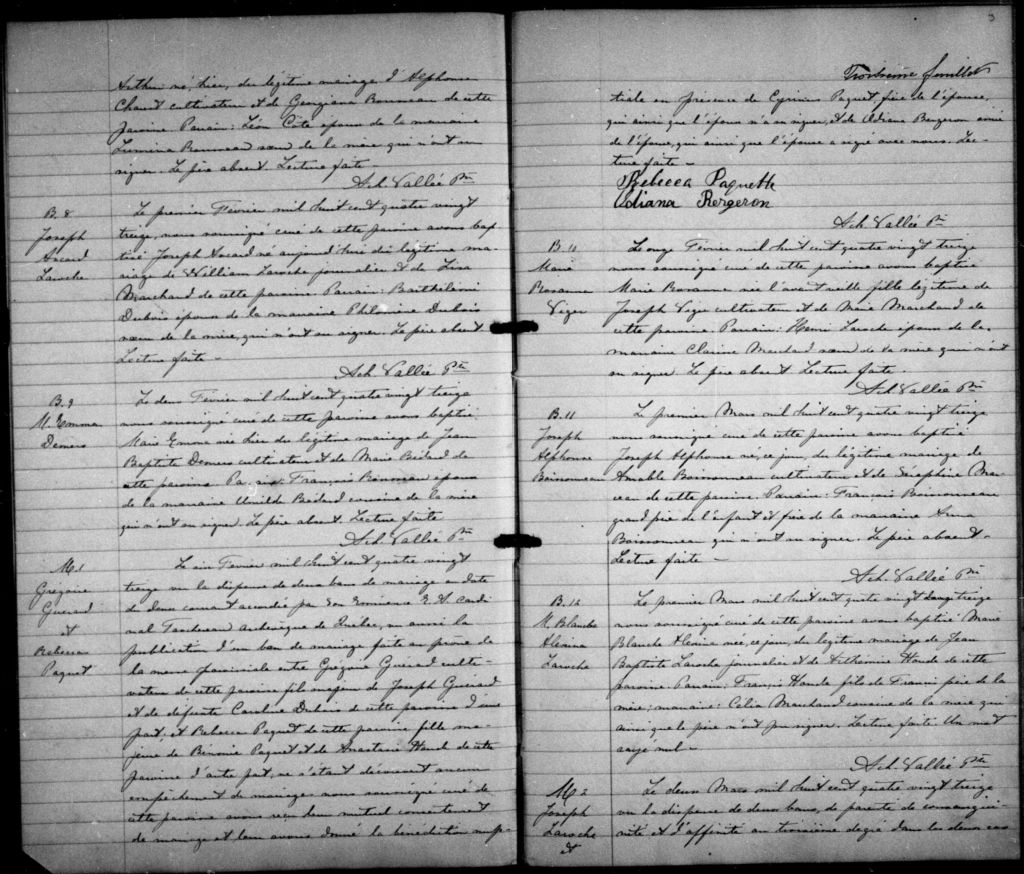 Arthur né, hier, du légitime mariage d'Alphonse
Chand cultivateur et de Georgiana Bonneau de cette
paroisse Parrain: Léon Côté époux de la marraine
Lumina Bonneau sœur de la mère qui n'ont su
signer. Le père absent. Lecture faite -
Ach. Vallée Ptre
B. 8
Joseph
Laroche
Le premier Février mil huit cent quatre vingt
treize, nous soussigné curé de cette paroisse avons bap
tisé Joseph né aujourd'hui du légitime ma-
riage de William Laroche journalier et de Lisa
Marchand de cette paroisse. Parrain: Barthélemi
Dubois époux de la marraine Philomène Dubois
sœur de la mère, qui n'ont su signer. Le père absent
Lecture faite -
Ach. Vallée Ptre
B. 9
M. Emma
Demers
Le deux Février mil huit cent quatre vingt treize
nous soussigné curé de cette paroisse avons baptisé
Marie Emma née hier du légitime mariage de Jean
Baptiste Demers cultivateur et de Marie Bédard de
cette paroisse Parrain: François Bonneau époux
de la marraine Bédard cousine de la mère
qui n'ont su signer. Le père absent. Lecture faite
Ach. Vallée Ptre
M. 1
Grégoire
Guérard
et
Rebecca
Paquet
Le six Février mil huit cent quatre vingt
treize vu la dispense de deux bans de mariage en date
de deux courant accordée par Son Eminence E. A. Cardi
nal Taschereau archevêque de Québec, vu aussi la
publication d'un ban de mariage faite au prône de
la messe paroissiale entre Grégoire Guérard culti-
vateur de cette paroisse fils majeur de Joseph Guérard
et de défunte Caroline Dubois de cette paroisse d'une
part, et Rebecca Paquet de cette paroisse fille ma-
jeure de Bénonie Paquet et de Anastasie de cette
paroisse d'autre part, ne s'étant découvert aucun
empêchement de mariage nous soussigné curé de
cette paroisse avons reçu leur mutuel consentement
de mariage et leur avons donné la bénédiction nup-
Troisième feuillet
tiale en présence de Cyrinus Paquet, frère de l'épouse,
qui ainsi que l'époux n'a su signer, et de Odiana Bergeron amie
de l'épouse, qui ainsi que l'épouse a signé avec nous. Lec-
ture faite -
Rebecca Paquette
Odiana Bergeron
Ach. Vallée Ptre
B. 10
Marie
Rosanna
Véger
Le onze Février mil huit cent quatre vingt treize
nous soussigné curé de cette paroisse avons baptisé
Marie Rosanna née l'avant veille fille légitime de
Joseph Véger cultivateur et de Marie Marchand de
cette paroisse Parrain: Henri Laroche époux de la
marraine Clarisse Marchand sœur de la mère qui n'ont
su signer. Le père absent Lecture faite.
Ach. Vallée Ptre
B. 11
Joseph
Alphonse
Boissonneau
Le premier Mars mil huit cent quatre vingt treize
nous soussigné curé de cette paroisse avons baptisé
Joseph Alphonse né, ce jour, du légitime mariage de
Amable Boissonneau cultivateur et de Séraphie Mar
ceau de cette paroisse. Parrain: François Boissonneau
grand père de l'enfant et père de la marraine Anna
Boissonneau qui n'ont su signer. Le père absent.
Lecture faite -
Ach. Vallée Ptre
B. 12
M. Blanche
Alexina
Laroche
Le premier Mars mil huit cent quatre vingt treize
nous soussigné curé de cette paroisse avons baptisé Marie
Blanche née, ce jour, du légitime mariage de Jean
Baptiste Laroche journalier et de de cette
paroisse. Parrain: fils de Francis père de la
mère; marraine: Célia Marchand cousine de la mère qui
ainsi que le père n'ont pu signer. Lecture faite. Un mot
rayé nul -
Ach. Vallée Ptre
M. 2
Joseph
Laroche
et
Le deux Mars mil huit cent quatre vingt treize
vu la dispense de deux bans, de parenté de consangui
nité et d'affinité au troisième degré dans les deux cas